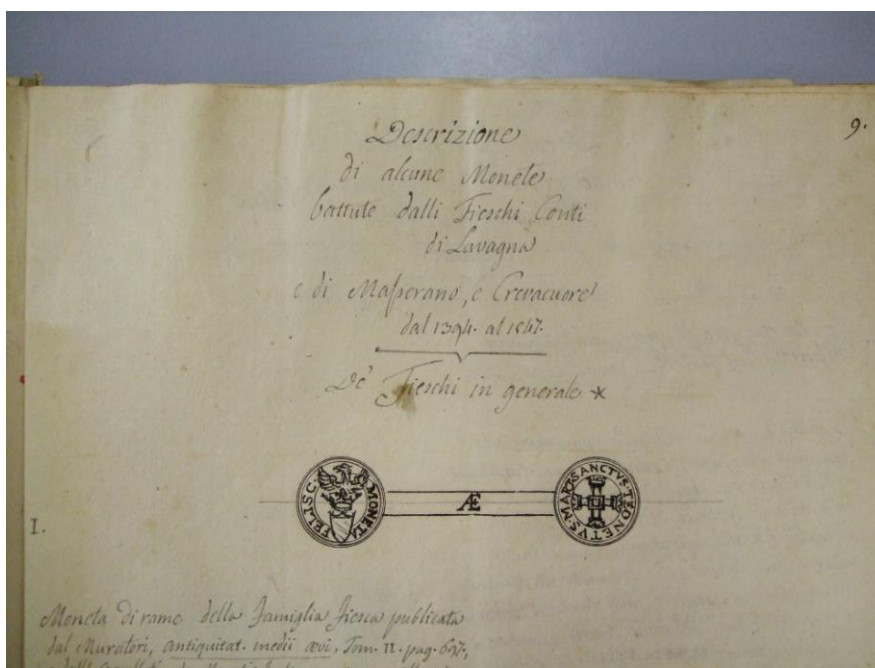 9.
Descrizione
di alcune Monete
battute dalli Fieschi Conti
di Lavagna
e di Masserano, e Crevacuore
dal 1394. al 1547.
De' Fieschi in generale *
FELISC. MONETA
Æ
SANCTVS TEONETVS MART
I.
Moneta di rame della famiglia Fiesca publicata
dal Muratori, antiquitat. medii ævi, Tom. II. pag. 697,